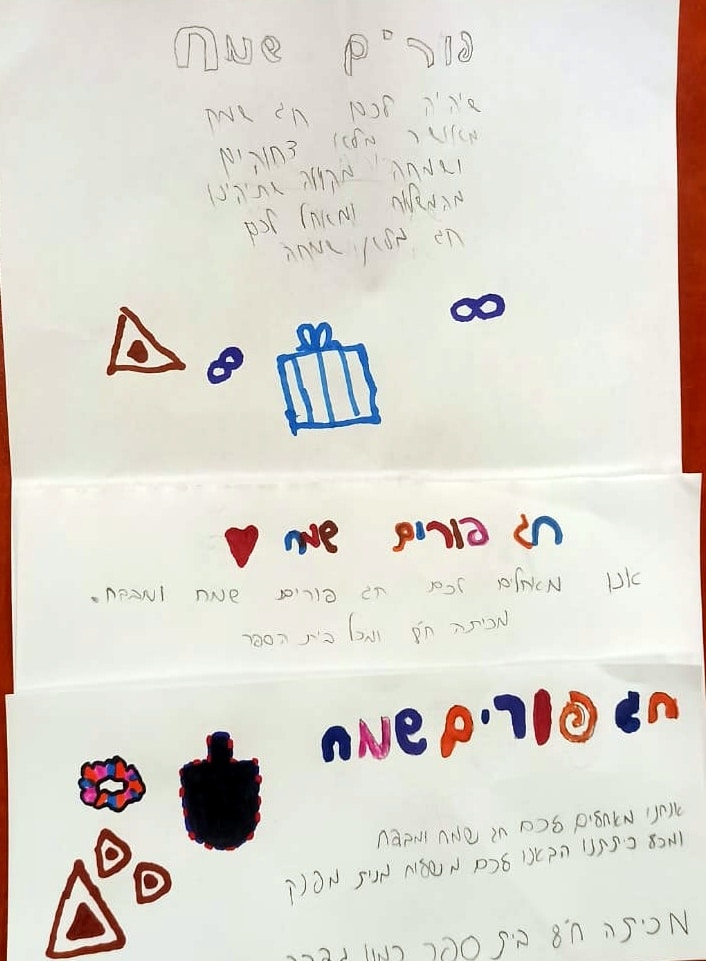 פורים שמח
שיהיה לכם חג שמח
מאושר מלא צחוקים
ושמחה מקווה שתיהינו
מהמשלוח ומאחל לכם
חג מלא שמחה
חג פורים שמח
אנו מאחלים לכם חג פורים שמח ומבדח.
מכיתה ח'ט ומכל בית הספר
חג פורים שמח
אנחנו מאחלים לכם חג שמח ומבדח
ומכל כיתתנו הבאנו לכם משלוח מנות מפנק
מכיתה בית ספר